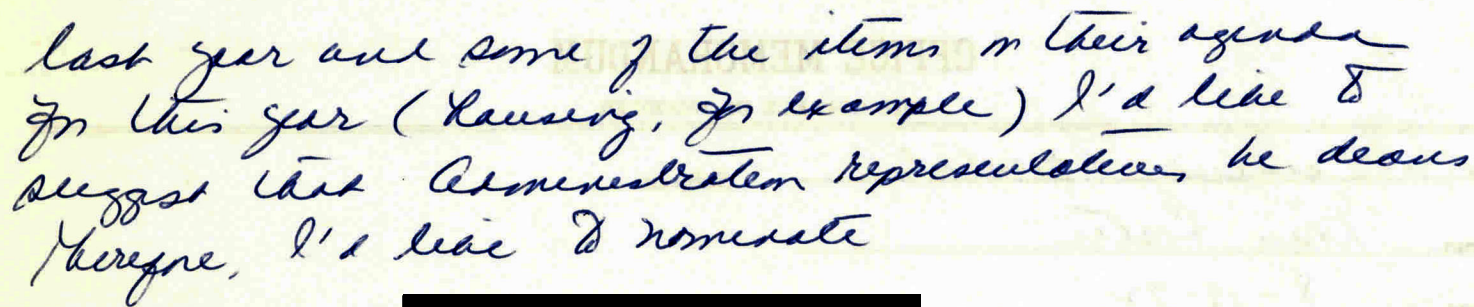 last year and some of the items on their agenda
for this year (housing, for example) I'd like to
suggest that Administration representatives be deans
Therefore, I'd like to nominate